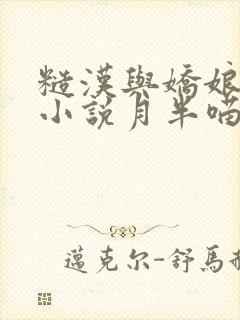 糙漢與嬌娘
小說月半喵
邁克尔-舒馬赫